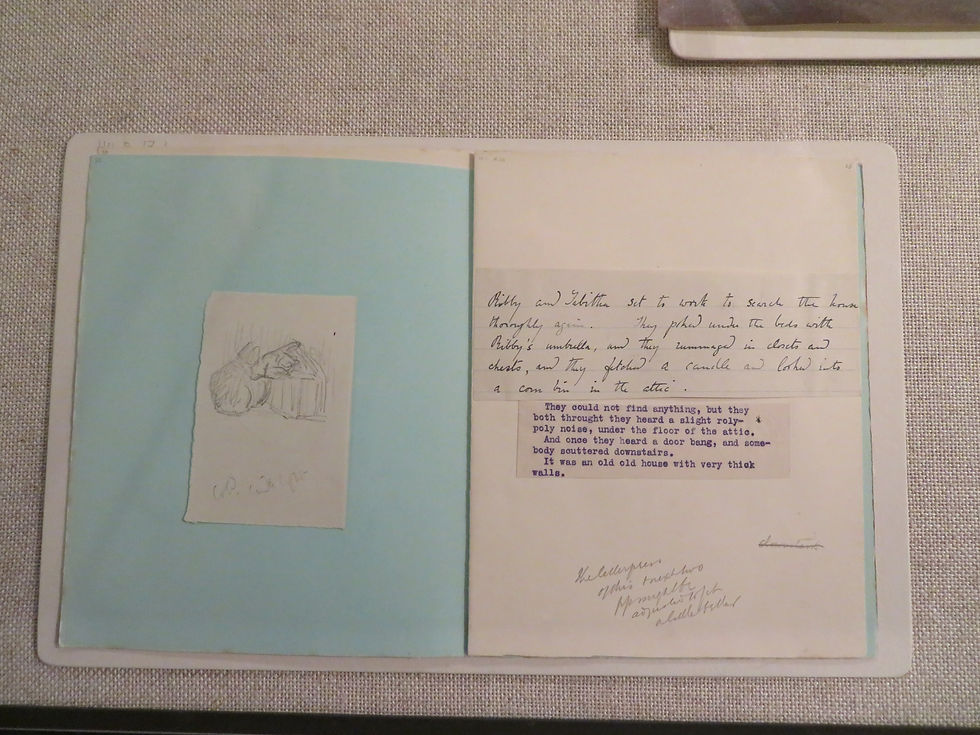 Ribby and Tabitha set to work to search the house
thoroughly again. They poked under the beds with
Ribby's umbrella, and they rummaged in closets and
chests, and they fetched a candle and looked into
a corn bin in the attic.
They could not find anything, but they
both throught they heard a slight roly-
poly noise, under the floor of the attic. *
And once they heard a door bang, and some-
body scuttered downstairs.
It was an old old house with very thick
walls.
The letterpress
of this & next two
pp might be
adjusted to fit
a little better